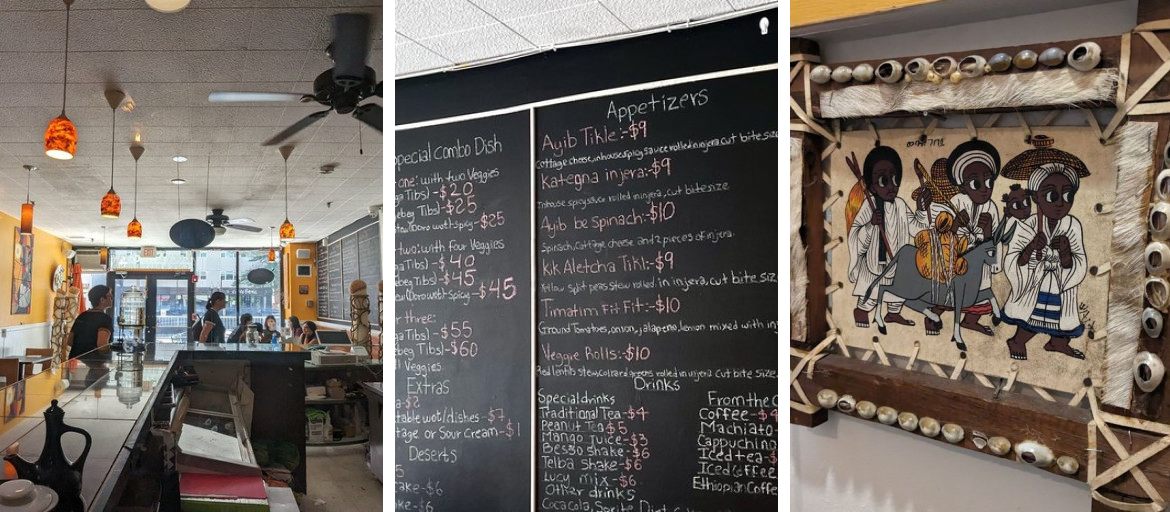 Special Combo Dish
one: with two Veggies
Tibs) -$20
Tibs) -$25
Doro wot-Spicy -$25
two: with four Veggies
Tibs) -$40
Tibs) -$45
Doro wot-Spicy -$45
three:
Tibs) -$55
Tibs) -$60
Veggies
Extras
-$2
wot/dishes -$7
or Sour Cream -$1
Deserts
-$6
Appetizers
Ayib Tikle:-$9
Cottage cheese, inhouse spicy sauce rolled in injera cut bite size
Kategna injera:-$9
Inhouse spicy sauce rolled in injera, cut bite size
Ayib be Spinach:-$10
Spinach, Cottage cheese and 2 pieces of injera.
Kik Aletcha Tikl:-$9
Yellow split peas stew rolled in injera, cut bite size
Timatim Fit Fit:-$10
Ground Tomatoes, onion, jalapeno, lemon mixed with in
Veggie Rolls:-$10
Red lentils stew, collard greens rolled in injera cut bite size.
Drinks
Special drinks
Traditional Tea-$4
Peanut Tea $5
Mango juice-$3
Besso shake-$6
Telba shake-$6
Lucy mix -$6
Other drinks
Coca Cola, Sprite, Diet
From the
Coffee -$4
Machiato
Cappuchino
Iced tea-$
Iced Coffee
Ethiopian Coffe